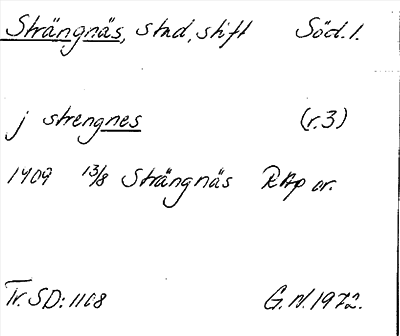 Strängnäs, stad, stift Söd. l.
j strengnes (r. 3)
1409 13/8 Strängnäs RAp or.
Tr. SD: 1108 G. N. 1972.